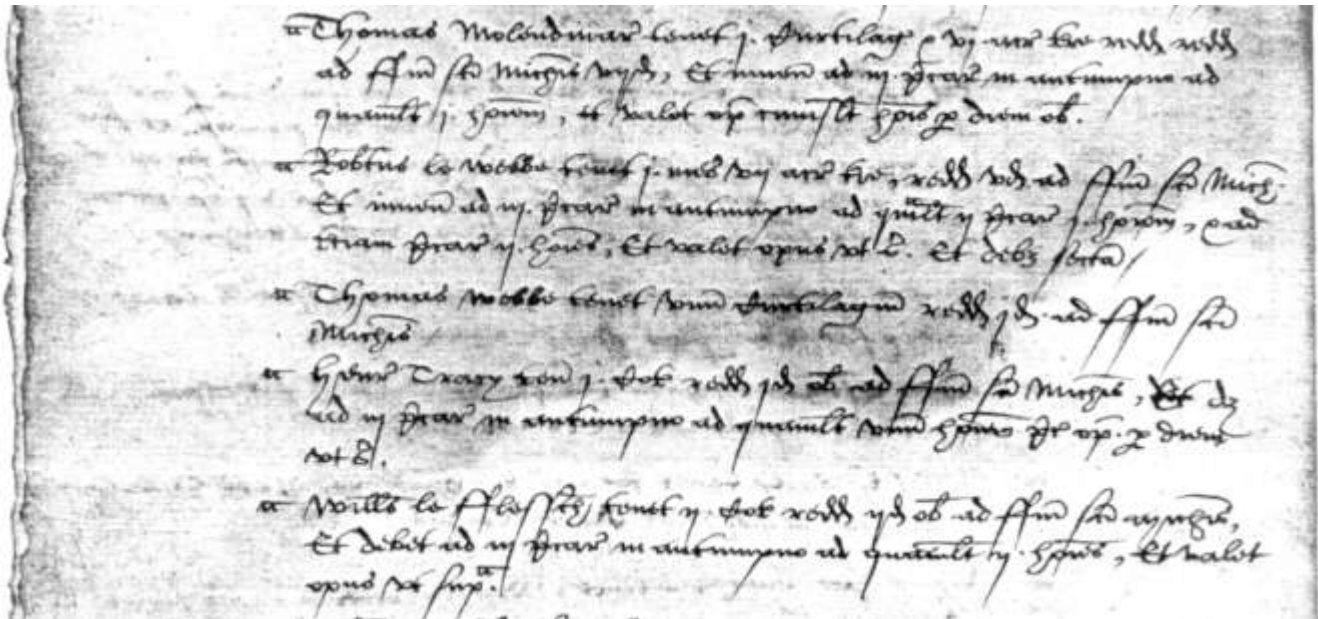 Thomas Molendinar tenet j. Curtilag & vj acr tre redd redd
ad ffm sci Michis vijd, Et inven ad iij p̄car in autumpno ad
quamlt j. hōiem, et valet op cuiuslt hōis p diem ob.
Robtus le Webbe tenet j. mes vij acr tre, redd vd ad ffm sci Mich.
Et inven ad iij. p̄car in autumpno ad qualt ij p̄car j. hōiem, & ad
tciam p̄car ij. hōies, Et valet opus vt s. Et debz secta
Thomas Webbe tenet vnu Curtilagiu redd jd. ad ffm sci
Michis
Henr Tracy ten j. Cot redd jd ob ad ffm sci Michis, Et dz
ad iij p̄car in autumpno ad quamlt vnu hōiem p̄c op. p diem
vt s.
Wills le fflessch tenet ij. Cot redd ijd ob ad ffm sci Michis,
Et debet ad iij p̄car in autumpno ad quamlt ij. hōies, Et valet
opus vt sup̄a.